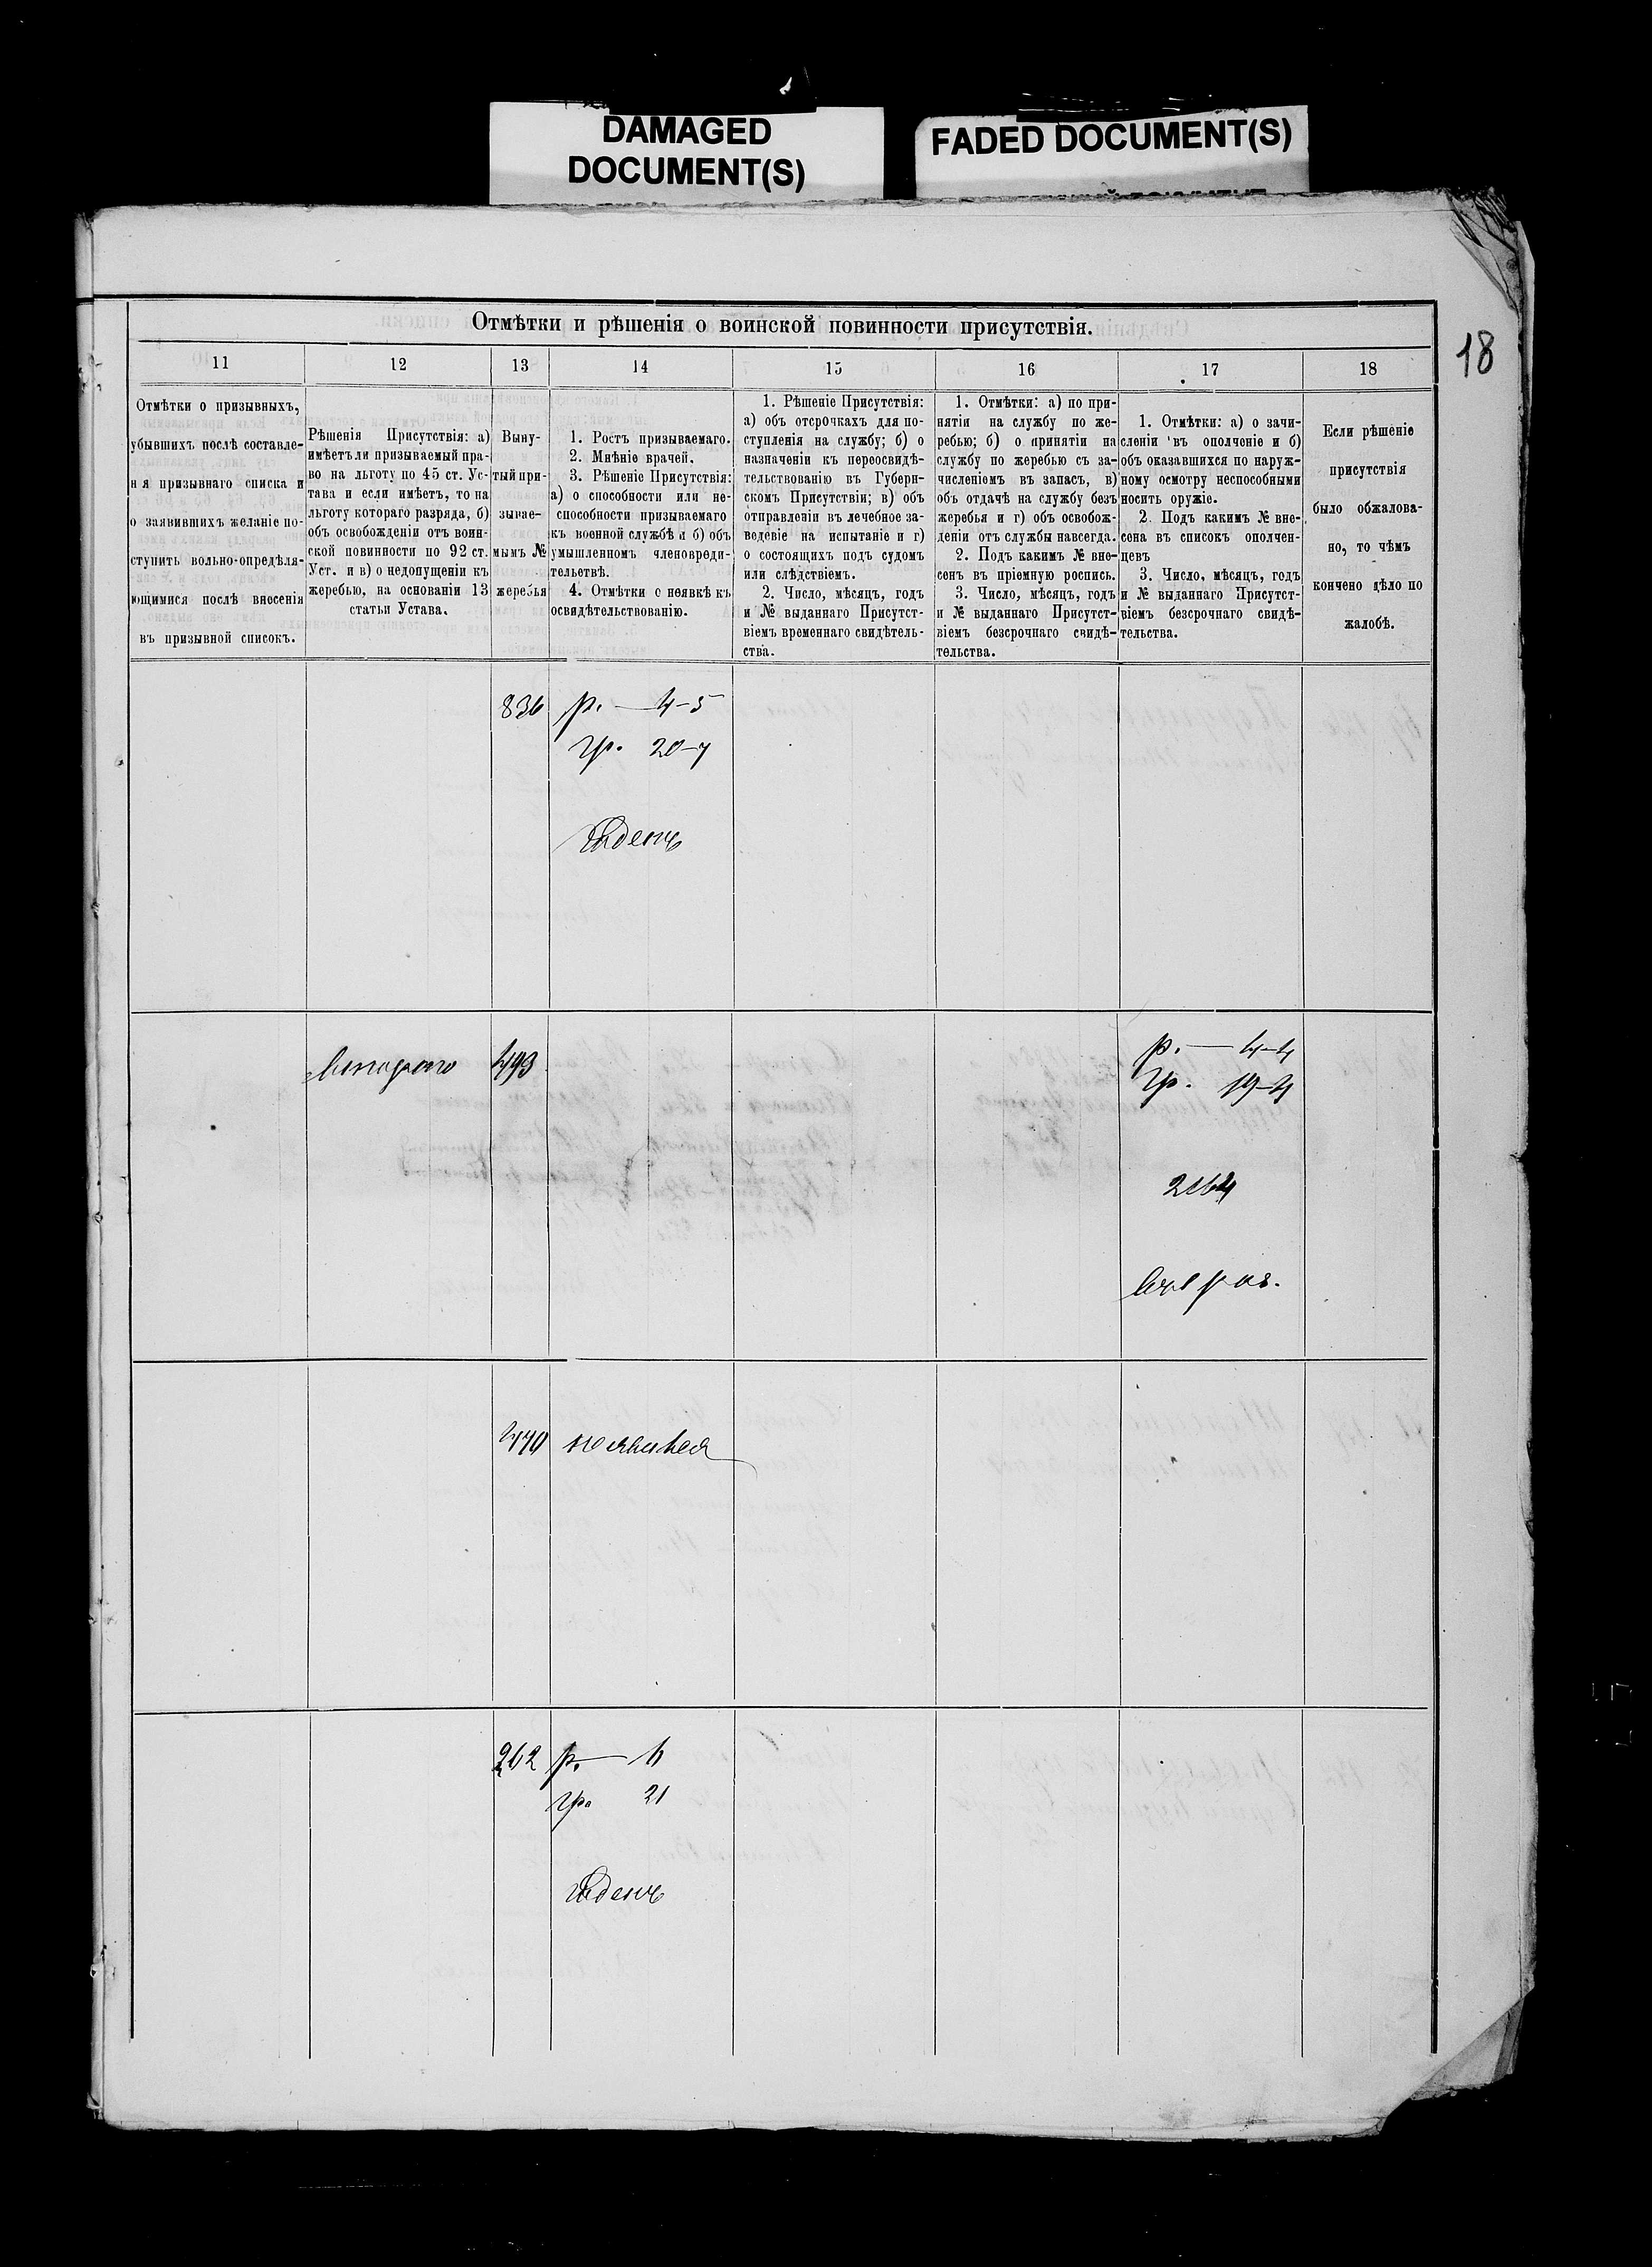 DAMAGED
DOCUMENT(S)
FADED DOCUMENT(S)
18
Отмѣтки и рѣшенія о воинской повинности присутствія.
11
12
13
14
15
16
17
18
Отмѣтки о призывныхъ,
убывшихъ послѣ составле-
нія призывнаго списка и
о заявившихъ желаніе по-
ступить вольно-опредѣля-
ющимися послѣ внесенія
въ призывной списокъ.
Рѣшенія Присутствія: а)
имѣетъ ли призываемый пра-
во на льготу по 45 ст. Ус-
тава и если имѣетъ, то на
льготу котораго разряда, б)
объ освобожденіи отъ воин-
ской повинности по 92 ст.
Уст. и в) о недопущеніи къ
жеребью, на основаніи 13
статьи Устава.
Выну-
тый при-
зывае-
мымъ №
жеребья
1. Ростъ призываемаго.
2. Мнѣніе врачей.
3. Рѣшеніе Присутствія:
а) о способности или не-
способности призываемаго
къ военной службѣ и б) объ
умышленномъ членовреди-
тельствѣ.
4. Отмѣтки о неявкѣ къ
освидѣтельствованію.
1. Рѣшеніе Присутствія:
а) объ отсрочкахъ для по-
ступленія на службу; б) о
назначеніи къ переосвидѣ-
тельствованію въ Губерн-
скомъ Присутствіи; в) объ
отправленіи въ лечебное за-
веденіе на испытаніе и г)
о состоящихъ подъ судомъ
или слѣдствіемъ.
2. Число, мѣсяцъ, годъ
и № выданнаго Присутст-
віемъ временнаго свидѣтель-
ства.
1. Отмѣтки: а) по при-
нятіи на службу по же-
ребью; б) о принятіи на
службу по жеребью съ за-
численіемъ въ запасъ, в)
объ отдачѣ на службу безъ
жеребья и г) объ освобож-
деніи отъ службы навсегда.
2. Подъ какимъ № вне-
сенъ въ пріемную роспись.
3. Число, мѣсяцъ, годъ
и № выданнаго Присутст-
віемъ безсрочнаго свидѣ-
тельства.
1. Отмѣтки: а) о зачи-
сленіи въ ополченіе и б)
объ оказавшихся по наруж-
ному осмотру неспособными
носить оружіе.
2. Подъ какимъ № вне-
сена въ списокъ ополчен-
цевъ
3. Число, мѣсяцъ, годъ
и № выданнаго Присутст-
віемъ безсрочнаго свидѣ-
тельства.
Если рѣшеніе
присутствія
было обжалова-
но, то чѣмъ
кончено дѣло по
жалобѣ.
836 р. — 4-5
гр. 20-7
Годенъ
втораго 493 р. — 4-4
гр. 19-4
2164
470 не явился
262 р. — 6
гр. 21
Годенъ